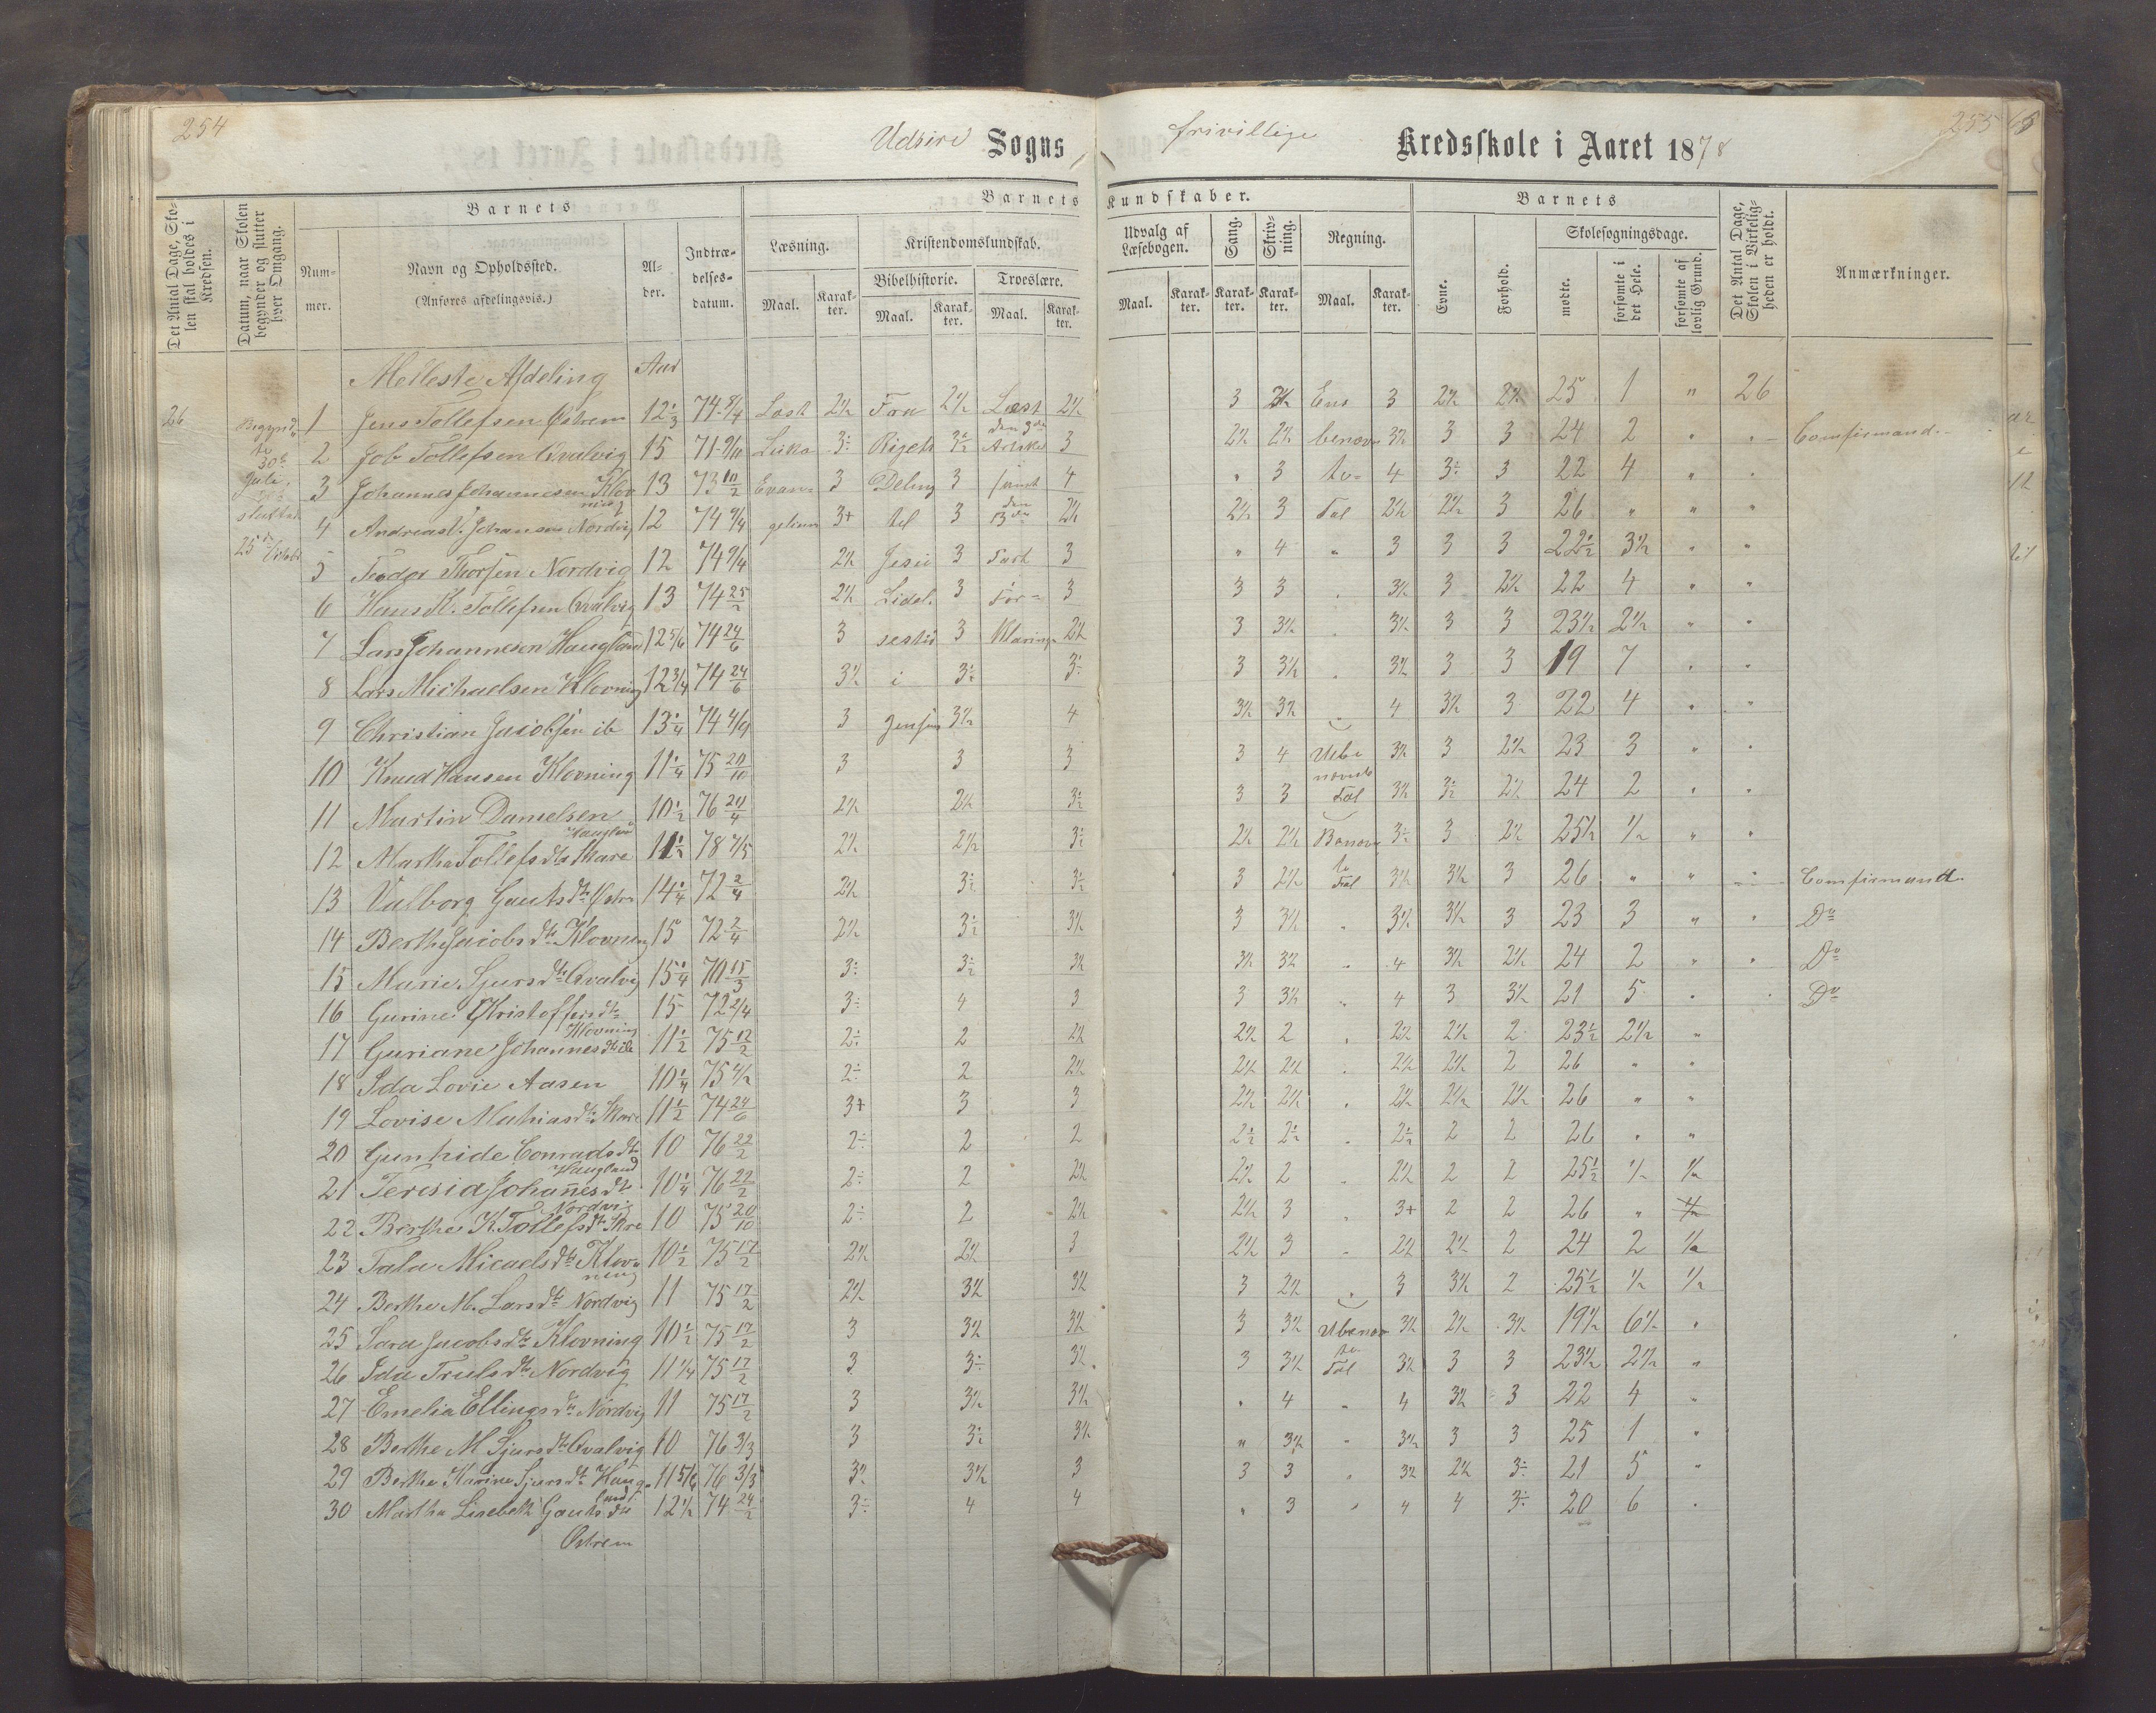 254
Udsire Sogns
frivillige Kredsskole i Aaret 1878
255
Det Antal Dage, Skolen skal holdes i Kredsen.
Datum, naar Skolen begynder og slutter hver Omgang.
Barnets
Nummer.
Navn og Opholdssted.
(Anføres afdelingsvis.)
Alder.
Indtrædelsesdatum.
Barnets Kundskaber.
Læsning.
Maal. Karakter.
Kristendomskundskab.
Bibelhistorie.
Maal. Karakter.
Troeslære.
Maal. Karakter.
Udvalg af Læsebogen.
Maal. Karakter.
Sang. Karakter.
Skrivning. Karakter.
Regning.
Maal. Karakter.
Barnets
Evne.
Forhold.
Skolesøgningsdage.
mødte.
forsømte i det Hele.
forsømte af lovlig Grund.
Det Antal Dage, Skolen i Virkeligheden er holdt.
Anmærkninger.
Melleste Afdeling Aar
26
1 Jens Tollefsen Østrem 12 1/3 74 9/4 Læst 2 1/2 Fra 2 1/2 Læst 2 1/2 3 Ens 3 2 1/2 2 1/2 25 1 " 26
2 Job Tollefsen Qvalvig 15 Luka 3 Rigets Artikel 3 2 1/2 2 1/2 benævn 3 1/2 3 3 24 2 " Comfirmand
3 Johannes Johannesen Klovning 13 73 10/2 Evan 3 Deling 3 samt 4 " 3 te 4 3 22 4 "
4 Johansen Nordvig 12 74 9/4 gelium 3+ til 3 den 2 1/2 2 1/2 3 Tal 2 1/2 2 1/2 3 26 " " "
5 Teodor Thorsen Nordvig 12 74 9/4 2 1/2 Jesu 3 3 " 4 " 3 3 3 22 1/2 3 1/2 " "
6 Hans K. Tollefsen Qvalvig 13 74 25/2 2 1/2 Lidel 3 For 3 3 3 3 1/2 3 2 1/2 22 4 " "
7 Lars Johannesen Haugland 12 5/6 74 24/6 3 sestid 3 klaring 2 1/2 3 3 1/2 3 1/2 3 3 23 1/2 2 1/2 " "
8 Lars Michaelsen Klovning 12 3/4 74 24/6 3 1/2 i 3 3 3 1/2 3 1/2 3 3 19 7 " "
9 Christian Jacobsen ib 13 1/4 74 3 3 1/2 4 3 1/2 3 1/2 4 3 1/2 3 22 4 " "
10 Knud Hansen Klovning 11 1/4 75 20/10 3 3 3 3 4 Ube 3 1/2 3 2 1/2 23 3 " "
11 Martin Danielsen Haugland 10 1/2 76 24/4 2 1/2 2 1/2 3 1/2 3 3 nævnte Tal 3 1/2 3 1/2 2 1/2 24 2 " "
12 Martha Tollefsdtr Skare 11 1/2 78 7/5 2 1/2 2 1/2 2 1/2 2 1/2 Benævn 3 2 1/2 25 1/2 1/2 " "
13 Valborg Gautsdtr 14 1/4 72 2/4 2 1/2 3 1/2 3 1/2 3 2 1/2 te Tal 3 1/2 3 1/2 3 26 " " Comfirmand
14 Berthe Jacobsdtr Klovning 15 72 2/4 2 1/2 3 1/2 3 1/2 3 3 1/2 " 3 1/2 3 1/2 3 23 3 " " Do
15 Marie Sjursdtr Qvalvig 15 1/4 70 15/3 3 3 1/2 3 1/2 3 1/2 3 1/2 " 4 3 1/2 2 1/2 24 2 " " Do
16 Gurine Kristoffersdtr Klovning 15 72 2/4 3 4 3 3 3 1/2 " 4 3 3 1/2 21 5 " " Do
17 Guriane Johannesdtr ib 11 1/2 75 12/2 2 2 2 1/2 2 1/2 2 " 2 1/2 2 1/2 2 23 1/2 2 1/2 "
18 Ida Lovie Aasen 10 1/4 75 2 2 2 1/2 2 1/2 2 1/2 " 2 1/2 2 1/2 2 26 " "
19 Lovise Mathiasdtr Skare 11 1/2 74 24/6 3+ 3 3 2 1/2 2 1/2 " 2 1/2 2 1/2 2 1/2 26 " "
20 Gunhide Conradsdtr Haugland 10 76 22/2 2 2 2 2 1/2 2 1/2 " 2 1/2 2 2 26 " "
21 Teresia Johannesdtr Nordvig 10 1/4 76 22/2 2 2 2 1/2 2 1/2 2 " 2 1/2 2 2 25 1/2 1/2 1/2
22 Berthe K. Tollefsdtr Skre 10 75 20/10 2 2 2 1/2 2 1/2 3 " 3+ 2 2 26 "
23 Tala Micaelsdtr Klovning 10 1/2 75 17/2 2 1/2 2 1/2 3 2 1/2 3 " 2 1/2 2 1/2 2 24 2 1/2
24 Berthe M. Larsdtr Nordvig 11 75 17/2 2 1/2 3 1/2 3 1/2 3 2 1/2 " 3 3 1/2 2 25 1/2 1/2 1/2
25 Sara Jacobsdtr Klovning 10 1/2 75 17/2 3 3 1/2 3 1/2 3 3 1/2 Ubenævn 3 1/2 2 1/2 3 1/2 19 1/2 6 1/2 "
26 Ida Trulsdtr Nordvig 11 1/4 75 17/2 3 3 3 1/2 3 3 1/2 te Tal 3 1/2 3 3 23 1/2 2 1/2 "
27 Emelia Ellingsdtr Nordvig 11 75 17/2 3 3 1/2 3 1/2 " 4 " 4 3 1/2 3 22 4 "
28 Berthe M. Sjursdtr Qvalvig 10 76 3/3 3 3 1/2 3 1/2 " 3 1/2 " 3 1/2 3 3 25 1 "
29 Berthe Karine Sjursdtr Haugland 11 5/6 76 3/3 3 1/2 3 1/2 3 3 3 " 3 1/2 2 1/2 3 21 5 "
30 Martha Lisebeth Gautsdtr 12 1/2 74 24/2 3 4 4 " 3 " 4 4 3 20 6 "
Østrem